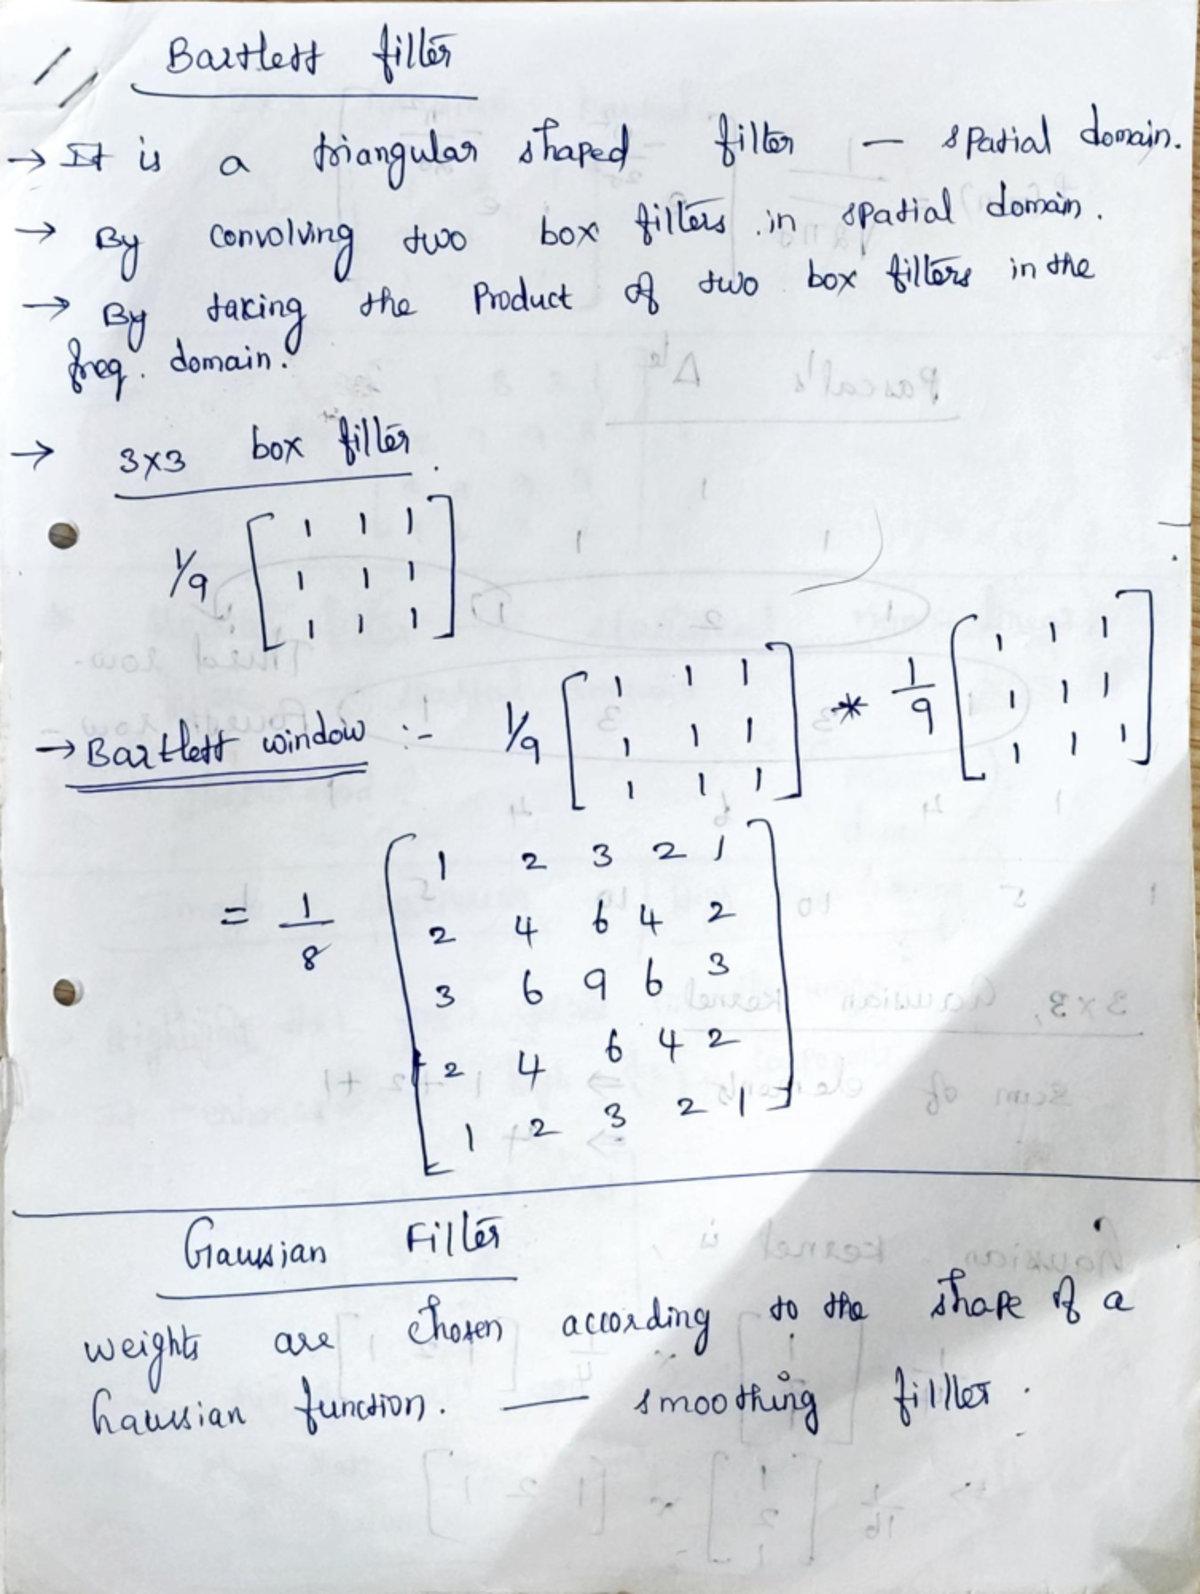 Bartlett filter
→ It is a triangular shaped filter — spatial domain.
→ By convolving two box filters in spatial domain.
→ By taking the Product of two box filters in the
freq. domain.
→ 3x3 box filter.
1/9 [ 1 1 1
1 1 1
1 1 1 ]
→ Bartlett window :- 1/9 [ 1 1 1
1 1 1
1 1 1 ] * 1/9 [ 1 1 1
1 1 1
1 1 1 ]
= 1/8 [ 1 2 3 2 1
2 4 6 4 2
3 6 9 6 3
2 4 6 4 2
1 2 3 2 1 ]
Gaussian Filter
weights are chosen according to the shape of a
Gaussian function. — smoothing fillter.